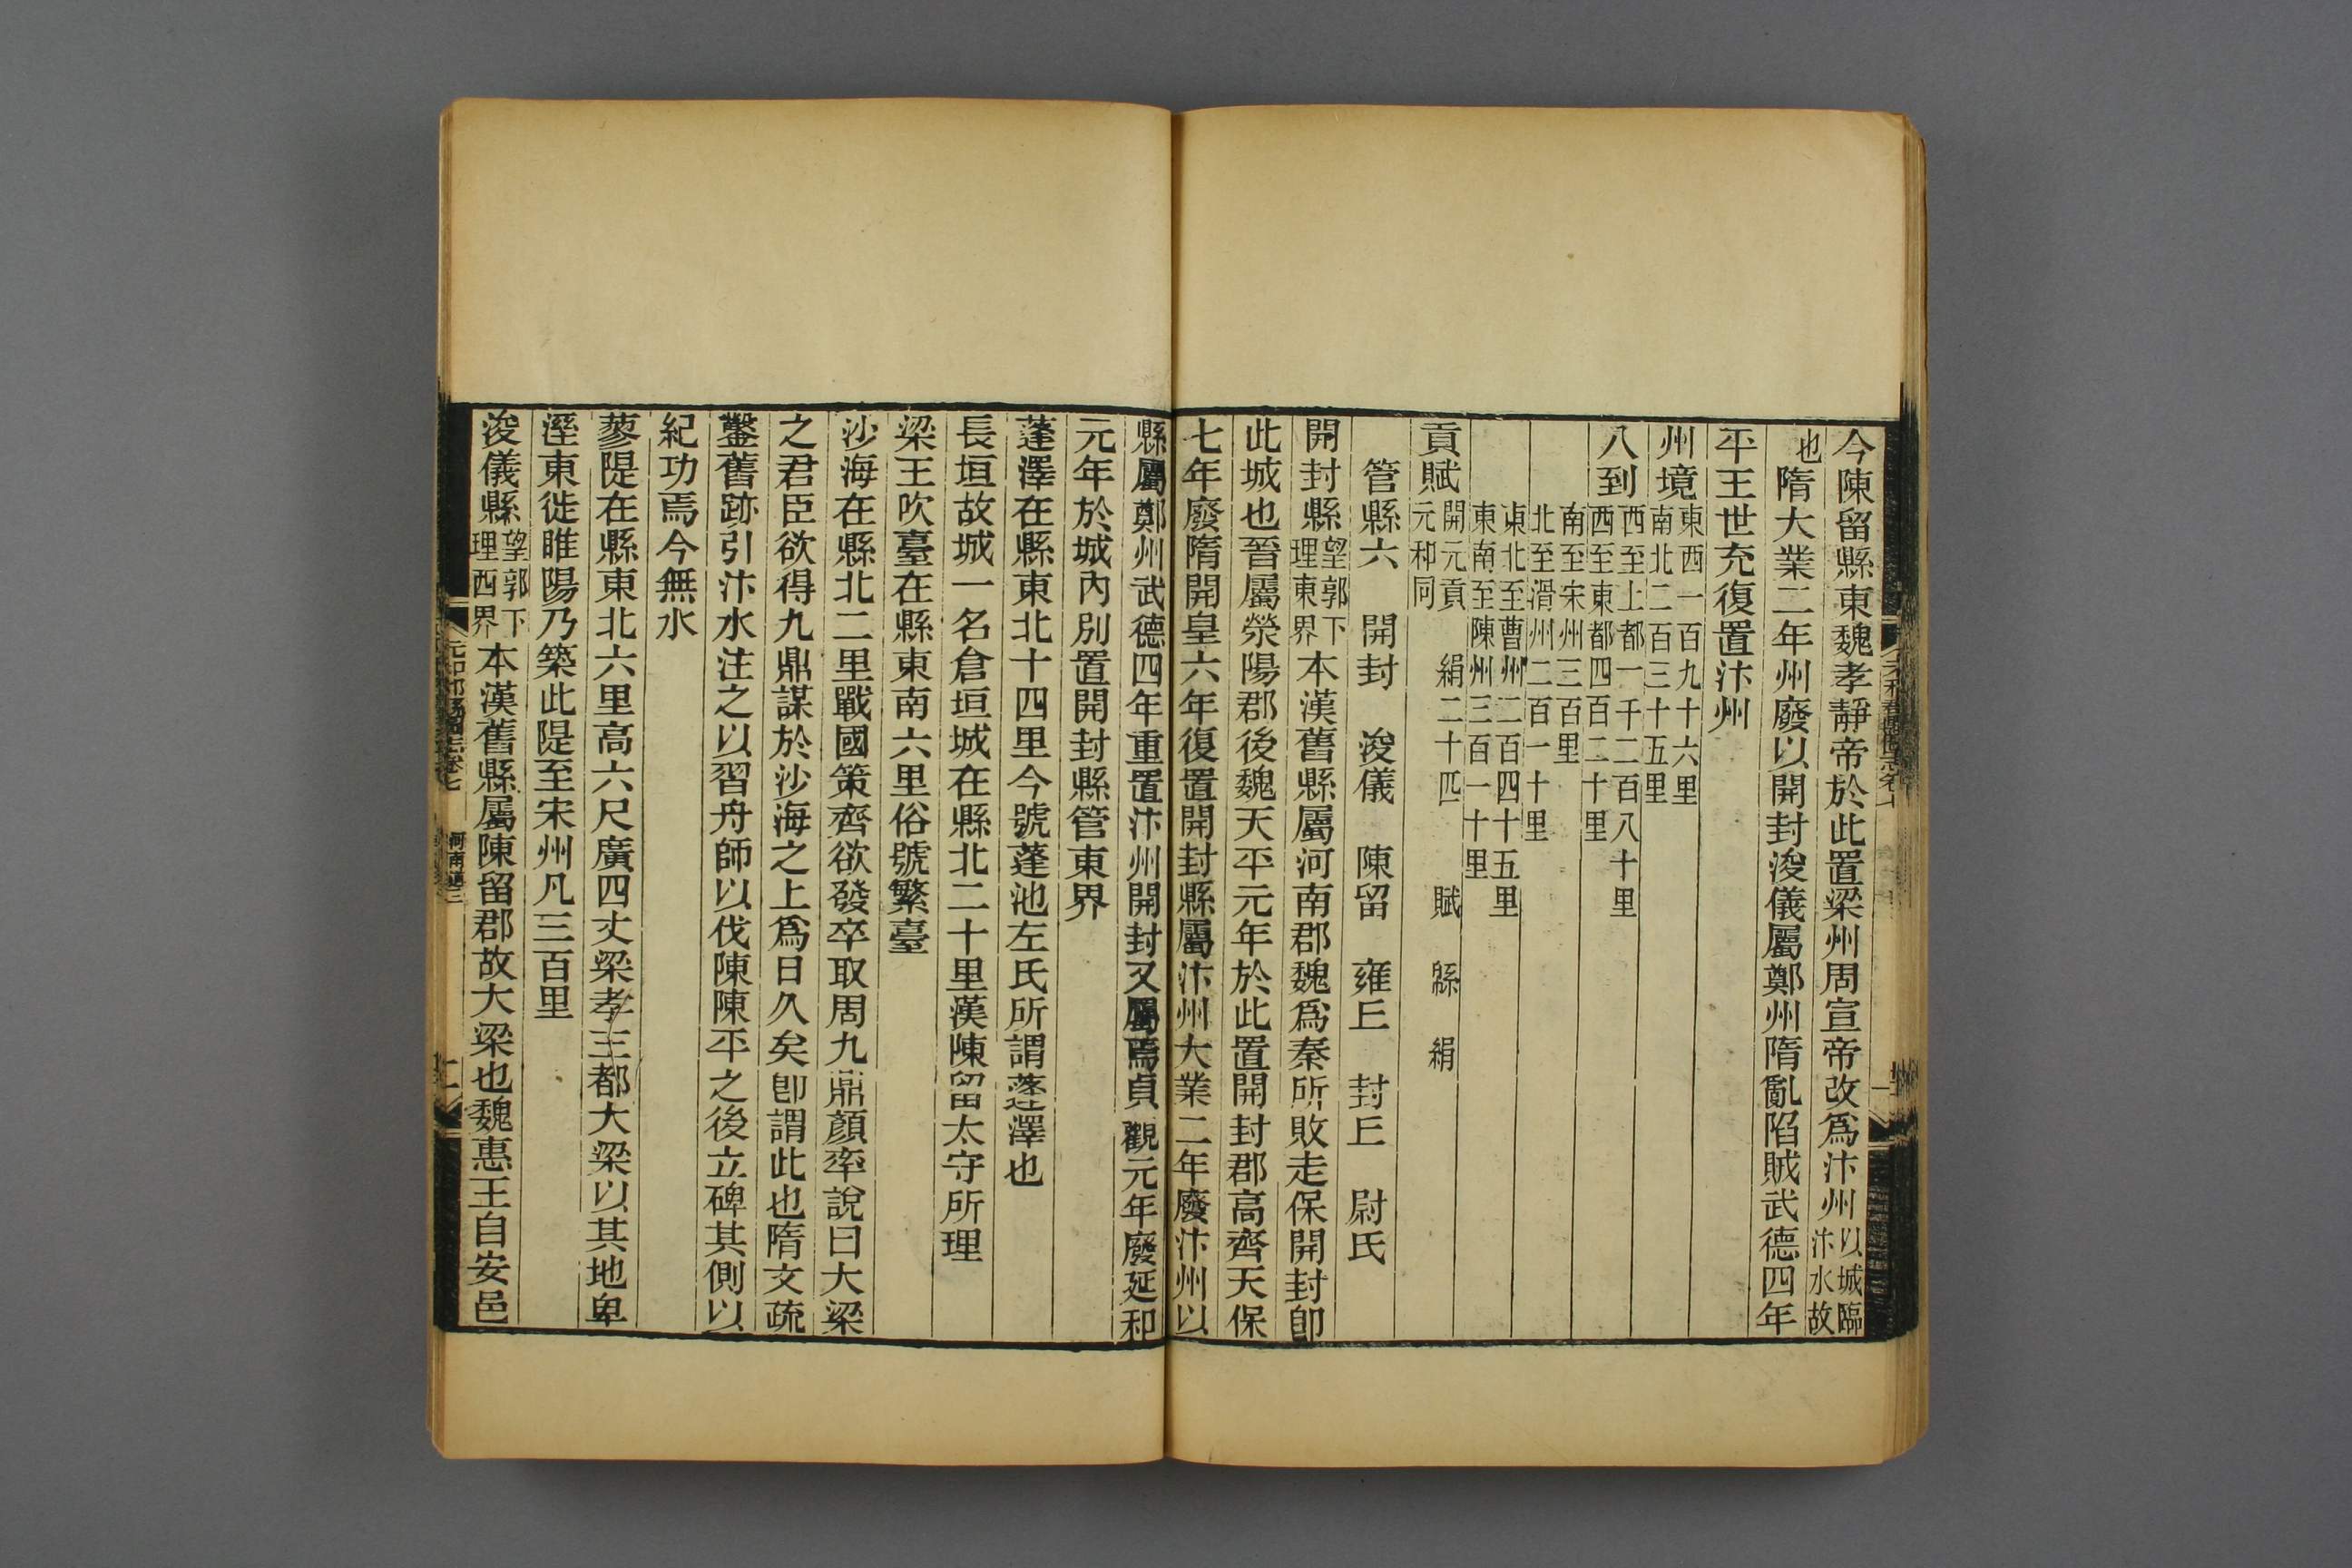 今陳留縣東魏孝靜帝於此置梁州周宣帝改爲汴州以城臨汴水故
也隋大業二年州廢以開封浚儀屬鄭州隋亂陷賊武德四年
平王世充復置汴州
州境東西一百九十六里南北二百三十五里
八到西至上都一千二百八十里西至東都四百二十里
南至宋州三百里北至滑州二百一十里
東北至曹州二百四十五里東南至陳州三百一十里
貢賦開元貢絹二十匹賦緜絹元和同
管縣六開封浚儀陳留雍丘封丘尉氏
開封縣望郭下理東界本漢舊縣屬河南郡魏爲秦所敗走保開封卽
此城也晉屬滎陽郡後魏天平元年於此置開封郡高齊天保
七年廢隋開皇六年復置開封縣屬汴州大業二年廢汴州以
縣屬鄭州武德四年重置汴州開封又屬焉貞觀元年廢延和
元年於城內別置開封縣管東界
蓬澤在縣東北十四里今號蓬池左氏所謂蓬澤也
長垣故城一名倉垣城在縣北二十里漢陳留太守所理
梁王吹臺在縣東南六里俗號繁臺
沙海在縣北二里戰國策齊欲發卒取周九鼎顏率說曰大梁
之君臣欲得九鼎謀於沙海之上爲日久矣卽謂此也隋文疏
鑿舊跡引汴水注之以習舟師以伐陳陳平之後立碑其側以
紀功焉今無水
蓼隄在縣東北六里高六尺廣四丈梁孝王都大梁以其地卑
溼東徙睢陽乃築此隄至宋州凡三百里
浚儀縣望郭下理西界本漢舊縣屬陳留郡故大梁也魏惠王自安邑
元和郡縣圖志卷七 河南道三 二